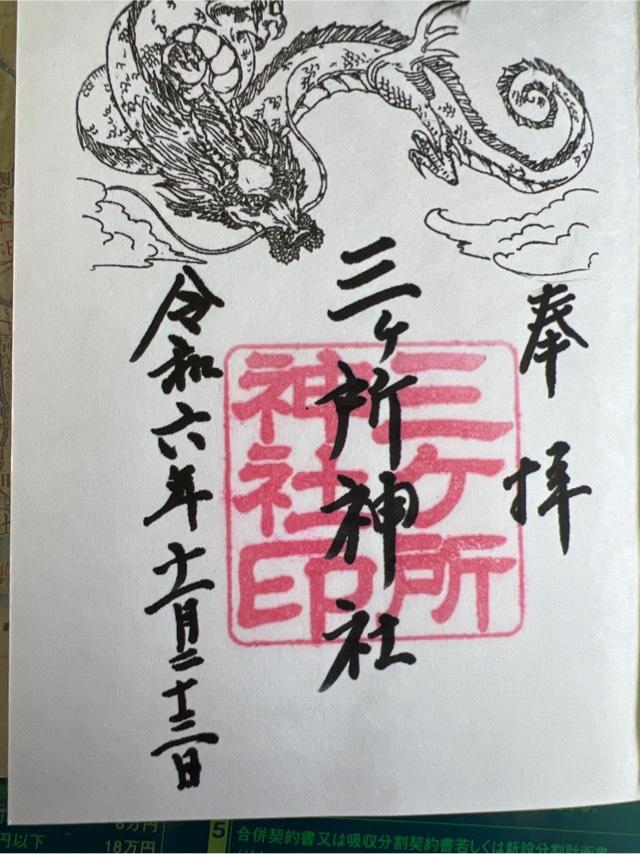 奉拝
三ヶ所神社
令和六年十一月二十三日
三ケ所
神社印
円以下 18万円
5 合併契約書又は吸収分割契約書若しくは新設分割計画書